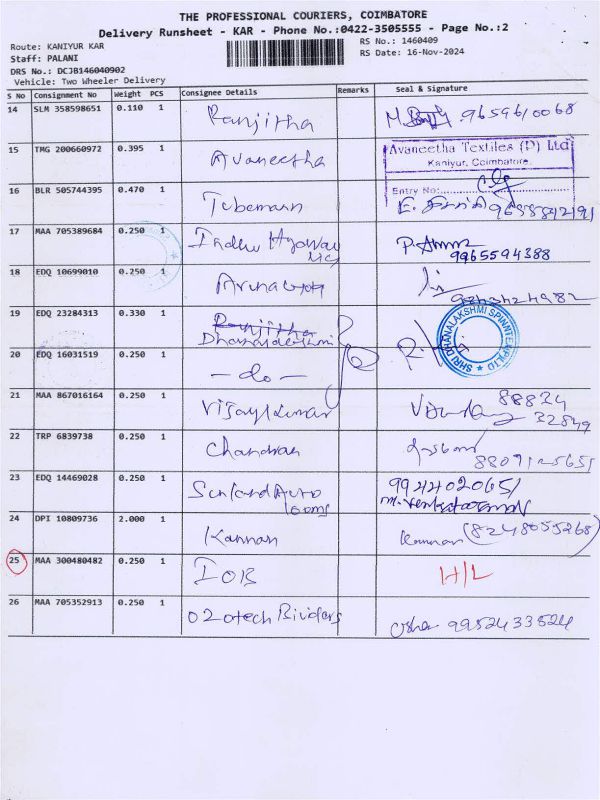 THE PROFESSIONAL COURIERS, COIMBATORE
Delivery Runsheet - KAR - Phone No.:0422-3505555 - Page No.:2
Route: KANIYUR KAR
RS No.: 1460409
Staff: PALANI
RS Date: 16-Nov-2024
DRS No.: DCJB146040902
Vehicle: Two Wheeler Delivery
S No Consignment No Weight PCS Consignee Details Remarks Seal & Signature
14 SLM 358598651 0.110 1 Ranjitha 9659610068
15 TMG 200660972 0.395 1 Avaneetha Avaneetha Textiles (P) Ltd
Kaniyur, Coimbatore.
Entry No:
16 BLR 505744395 0.470 1 Tubemann
17 MAA 705389684 0.250 1 Indhu 9965594388
18 EDQ 10699010 0.250 1
19 EDQ 23284313 0.330 1 Ranjitha
SHRI DHANALAKSHMI SPINNTEX (P) LTD
20 EDQ 16031519 0.250 1 - do -
21 MAA 867016164 0.250 1 Vijaykumar 88824
32849
22 TRP 6839738 0.250 1 Chandran
23 EDQ 14469028 0.250 1 9944020651
24 DPI 10809736 2.000 1 Kannan Kannan (8248055268)
25 MAA 300480482 0.250 1 IOB H/L
26 MAA 705352913 0.250 1 Usha 9952433524